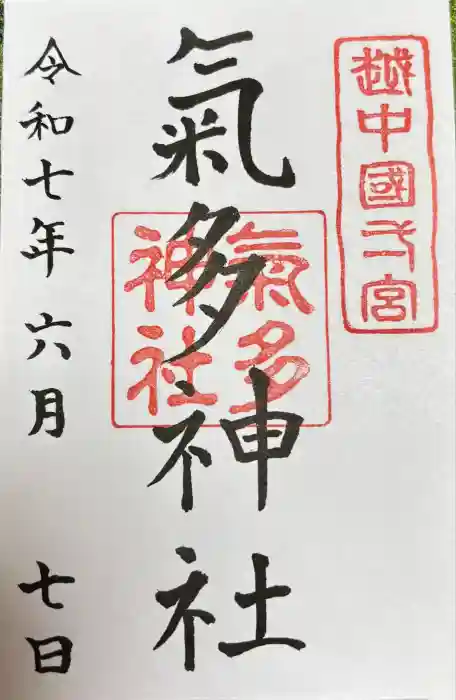 越中國一宮
氣多神社
氣多
神社
令和七年 六月 七日